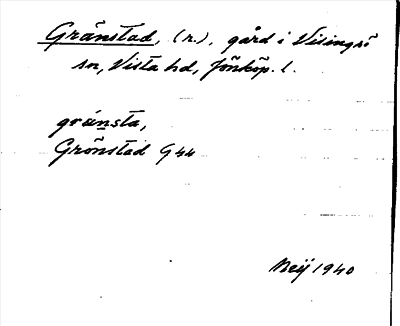 Gränstad, (n.), gård i Visingsö
sn, Vista hd, Jönköp. l.
gränsta,
Grönstad G44
Meij 1940